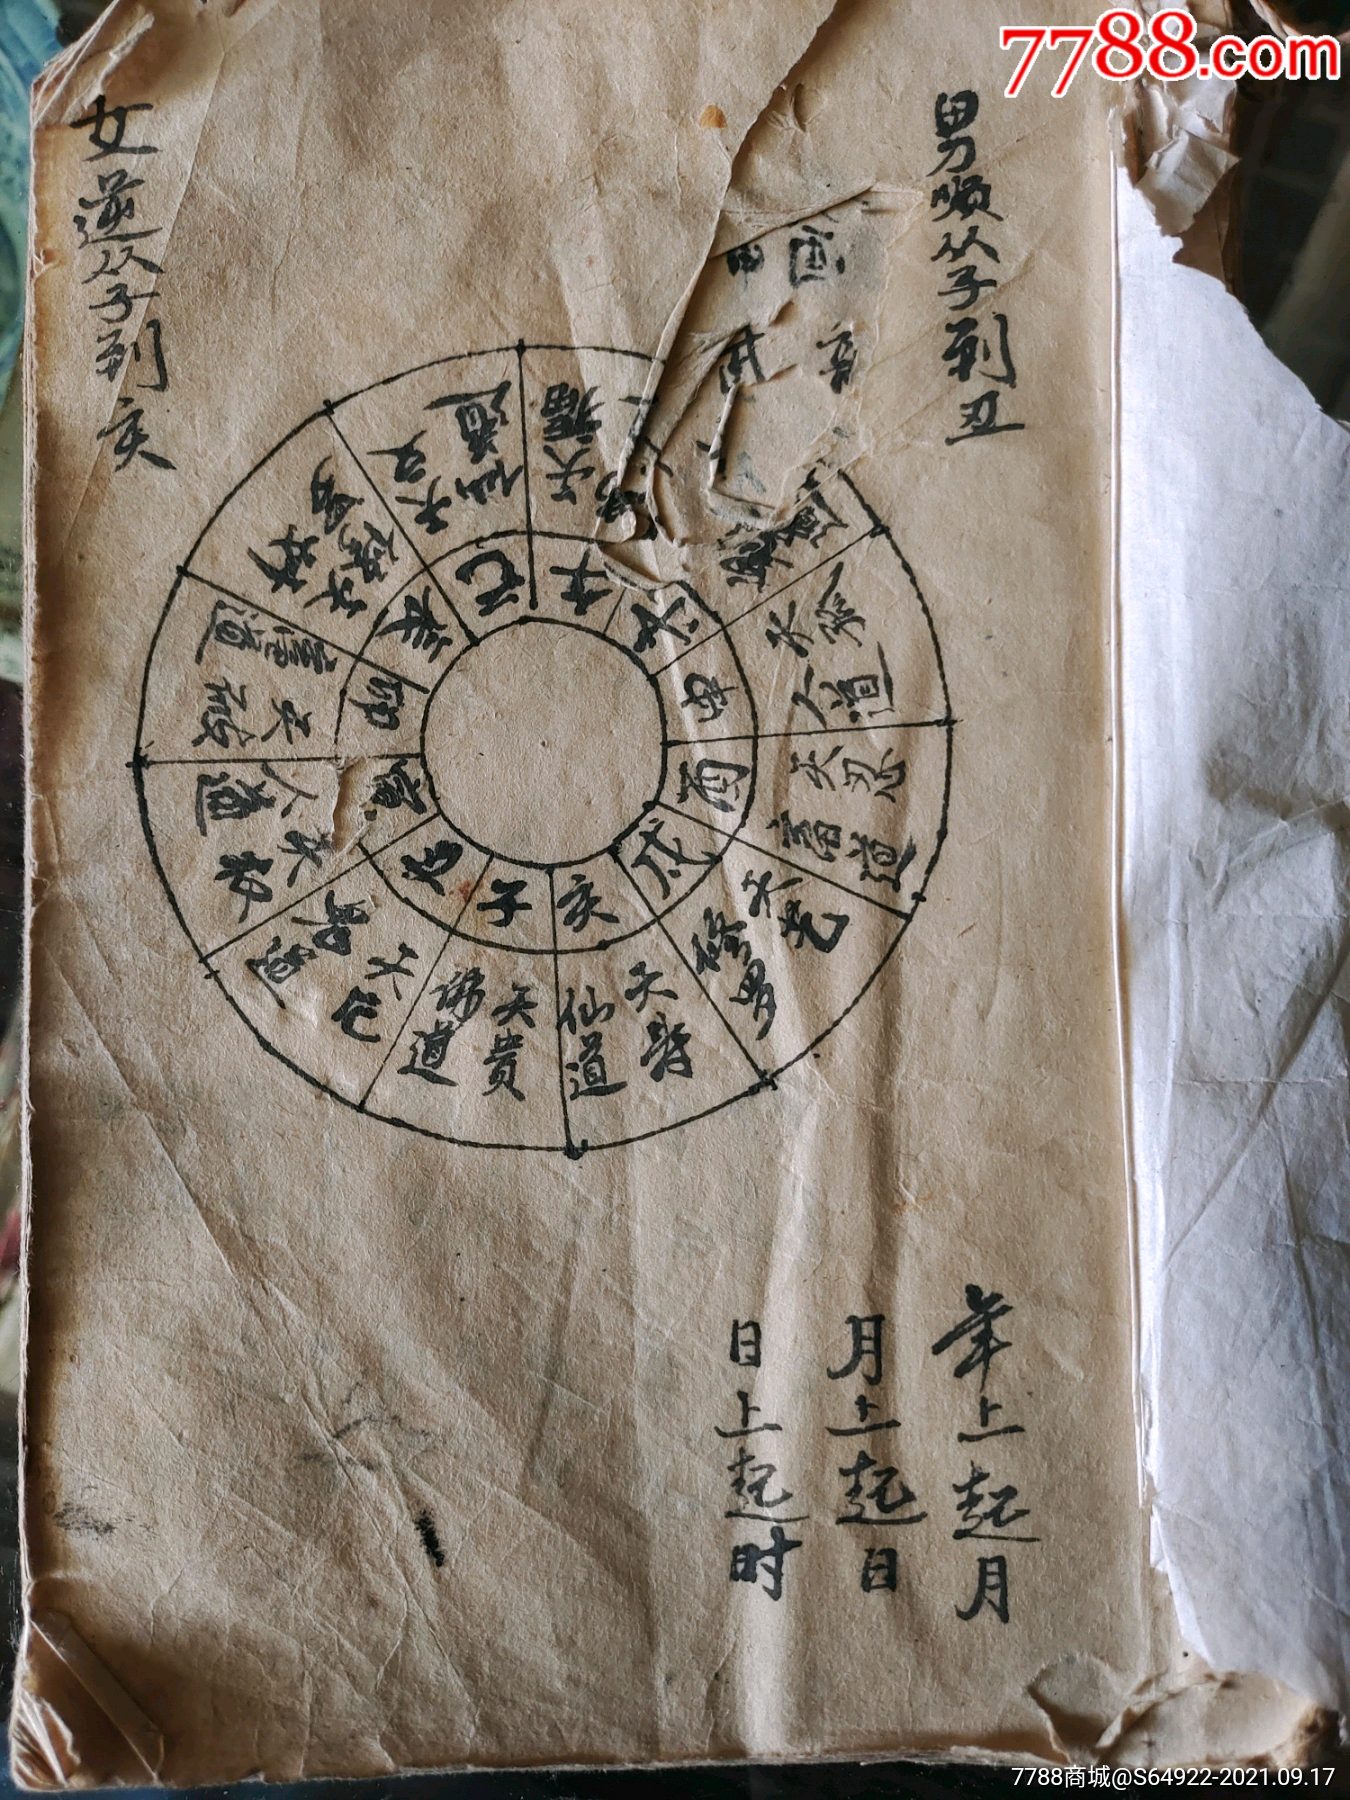 7788.com
男顺从子到丑
女逆从子到亥
子
天贵
佛道
丑
天厄
鬼道
寅
天权
人道
卯
天破
畜道
辰
天奸
修
巳
天文
仙道
午
天福
未
申
天孤
人道
酉
天忍
畜道
戌
天艺
修罗
亥
天寿
仙道
年上起月
月上起日
日上起时
7788商城@S64922-2021.09.17